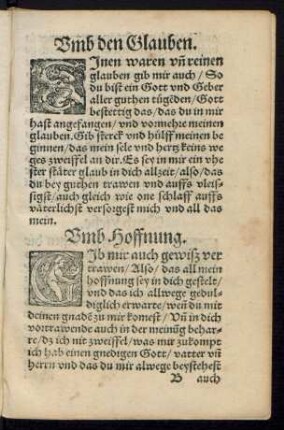 Vmb den Glauben.
EJnen waren vñ reinen
glauben gib mir auch / So
du bist ein Gott vnd Geber
aller guthen tügẽden / Gott
bestettig das / das du in mir
hast angefangen / vnd vormehre meinen
glauben. Gib sterck vnd hülff meinen be
ginnen / das mein sele vnd hertz keins we
ges zweiffel an dir. Es sey in mir ein vhe
ster stäter glaub in dich allzeit / also / das
du bey guthen trawen vnd auffs vleis-
sigst / auch gleich wie one schlaff auffs
väterlichst versorgest mich vnd all das
mein.
Vmb Hoffnung.
GJb mir auch gewisz ver
trawen / Also / das all mein
hoffnung sey in dich gestelt /
vnd das ich allwege gedul-
diglich erwarte / wen du mit
deinen gnadẽ zu mir komest / Vñ in dich
vortrawende auch in der meinũg behar-
re / dz ich nit zweiffel / was mir zukompt
ich hab einen gnedigen Gott / vatter vñ
herrn vnd das du mir alwege beystehest
B auch